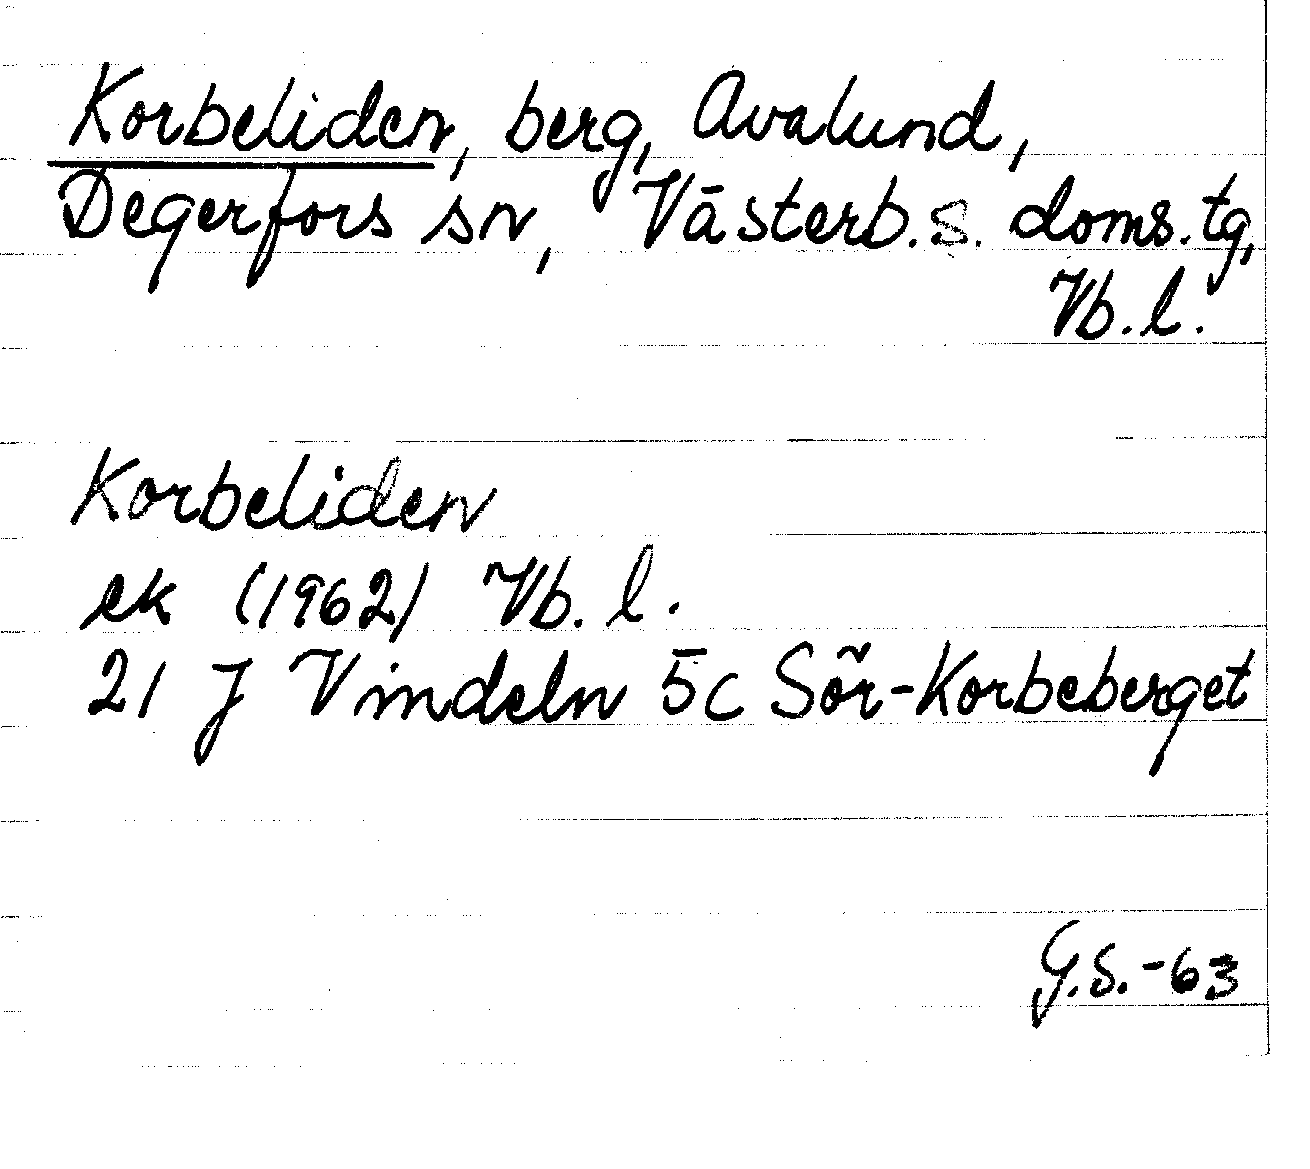 Korbeliden, berg, Avalund,
Degerfors sn, Västerb. s. doms. tg,
Vb. l.
Korbeliden
ek (1962) Vb. l.
21 J Vindeln 5c Sör-Korbeberget
G.S.-63